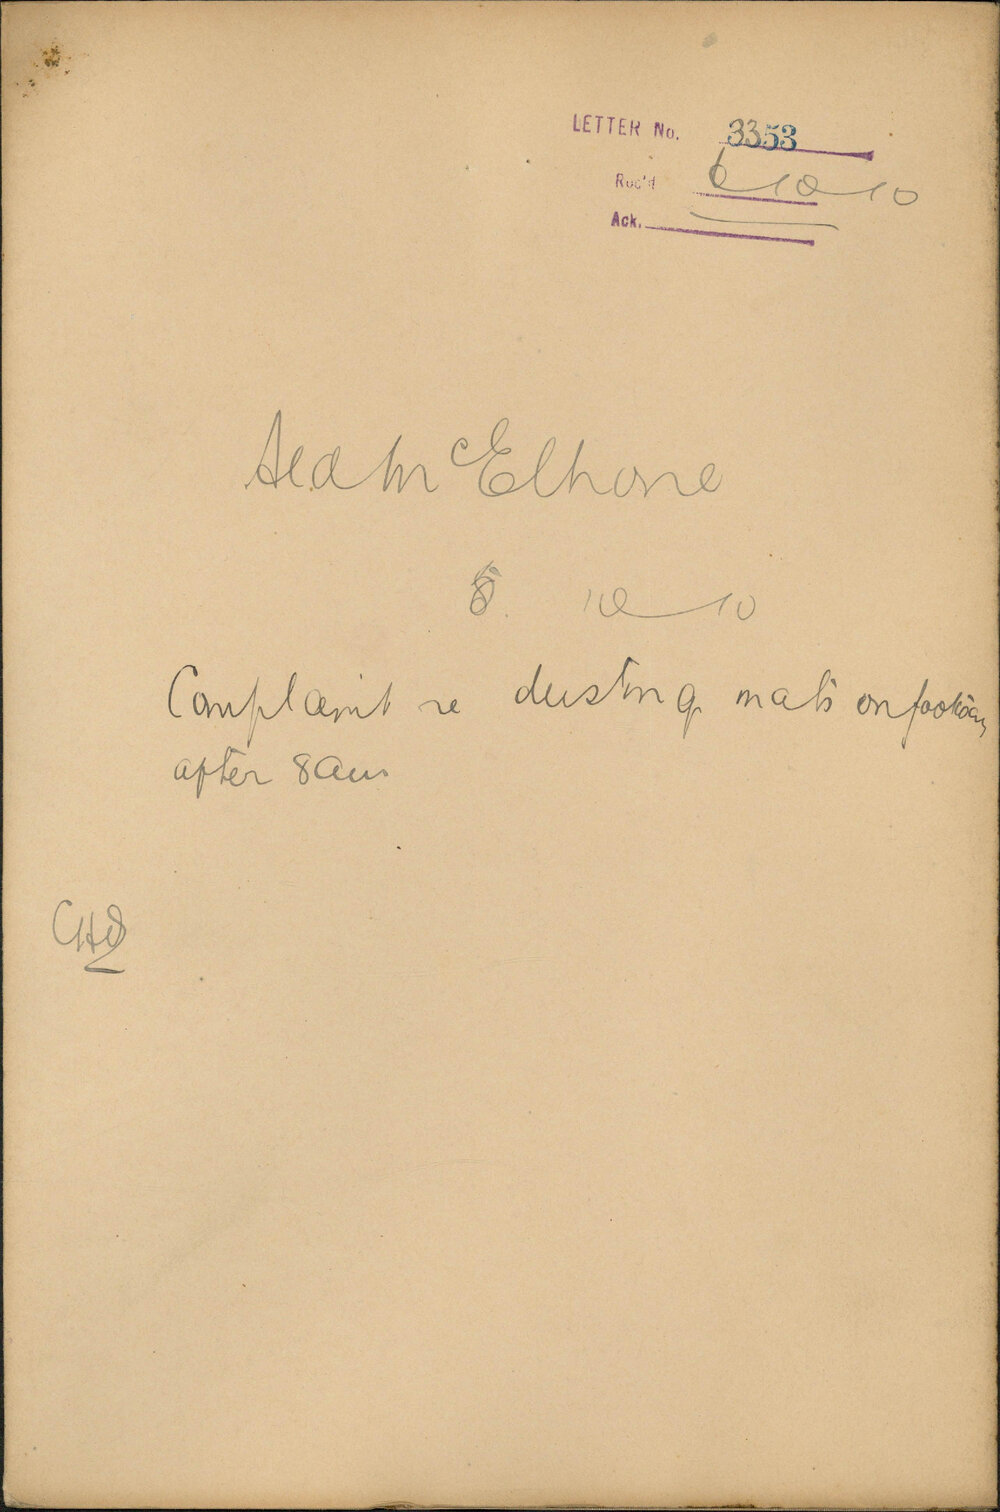 LETTER No. 3353
Rec'd 6-10-10
Ack.
Ald McElhone
10-10
Complaint re dusting mats on footway
after 8am